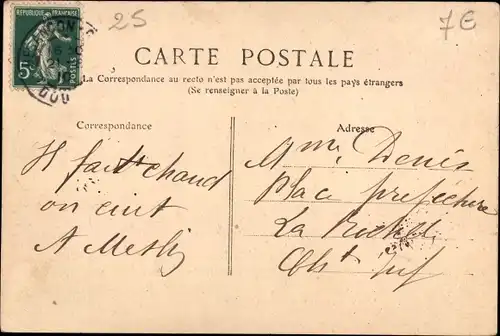 25
7€
REPUBLIQUE FRANÇAISE
POSTES
5c
CARTE POSTALE
La Correspondance au recto n'est pas acceptée par tous les pays étrangers
(Se renseigner à la Poste)
Correspondance
Adresse
Il fait chaud
on cuit
A
Mme Denis
Place préfecture
La
Chte Inf